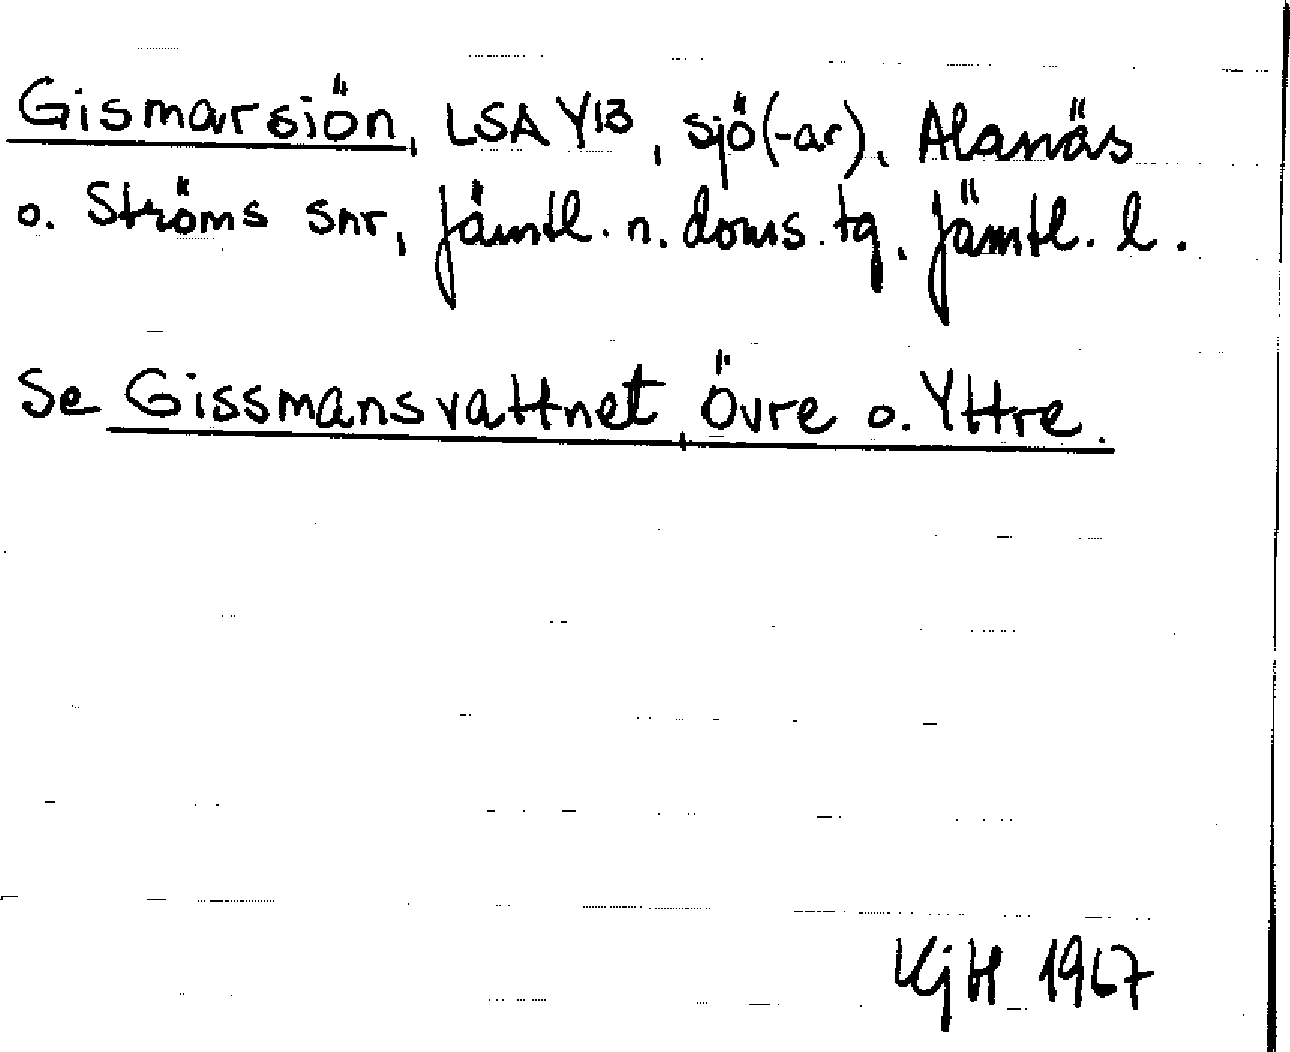 Gismarsiön, LSA Y13, sjö(-ar), Alanäs
o. Ströms snr, Jämtl. n. doms. tg, Jämtl. l.
Se Gissmansvattnet, Övre o. Yttre.
KjH 1967